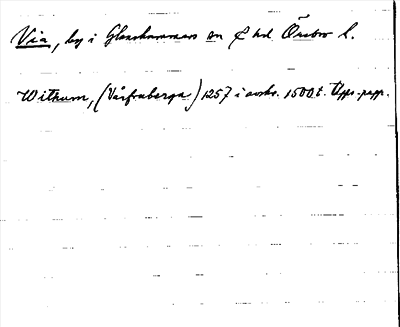 Via, by i Glanshammars sn o hd. Örebro l.
Withum, (Vårfruberga) 1257 i avskr. 1500t. Upps.-papp.